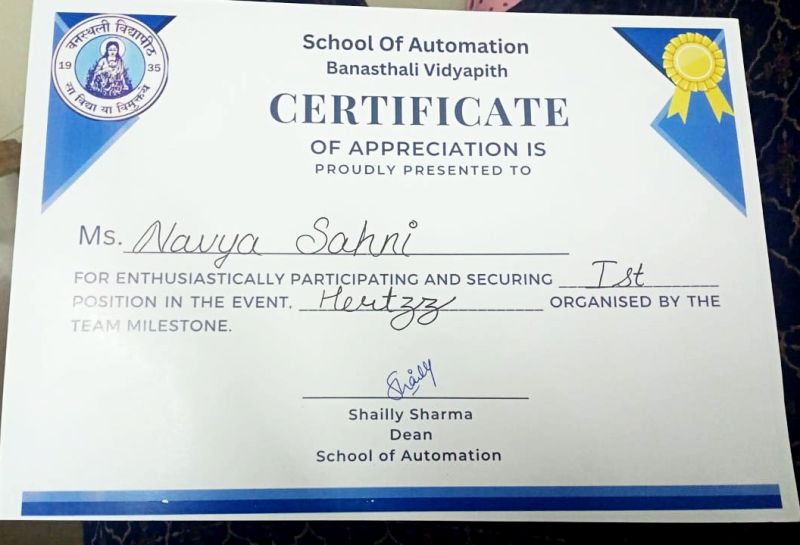 वनस्थली विद्यापीठ
1935
सा विद्या या विमुक्तये
School Of Automation
Banasthali Vidyapith
CERTIFICATE
OF APPRECIATION IS
PROUDLY PRESENTED TO
Ms. Navya Sahni
FOR ENTHUSIASTICALLY PARTICIPATING AND SECURING Ist
POSITION IN THE EVENT. Hertzz ORGANISED BY THE
TEAM MILESTONE.
Shailly
Shailly Sharma
Dean
School of Automation